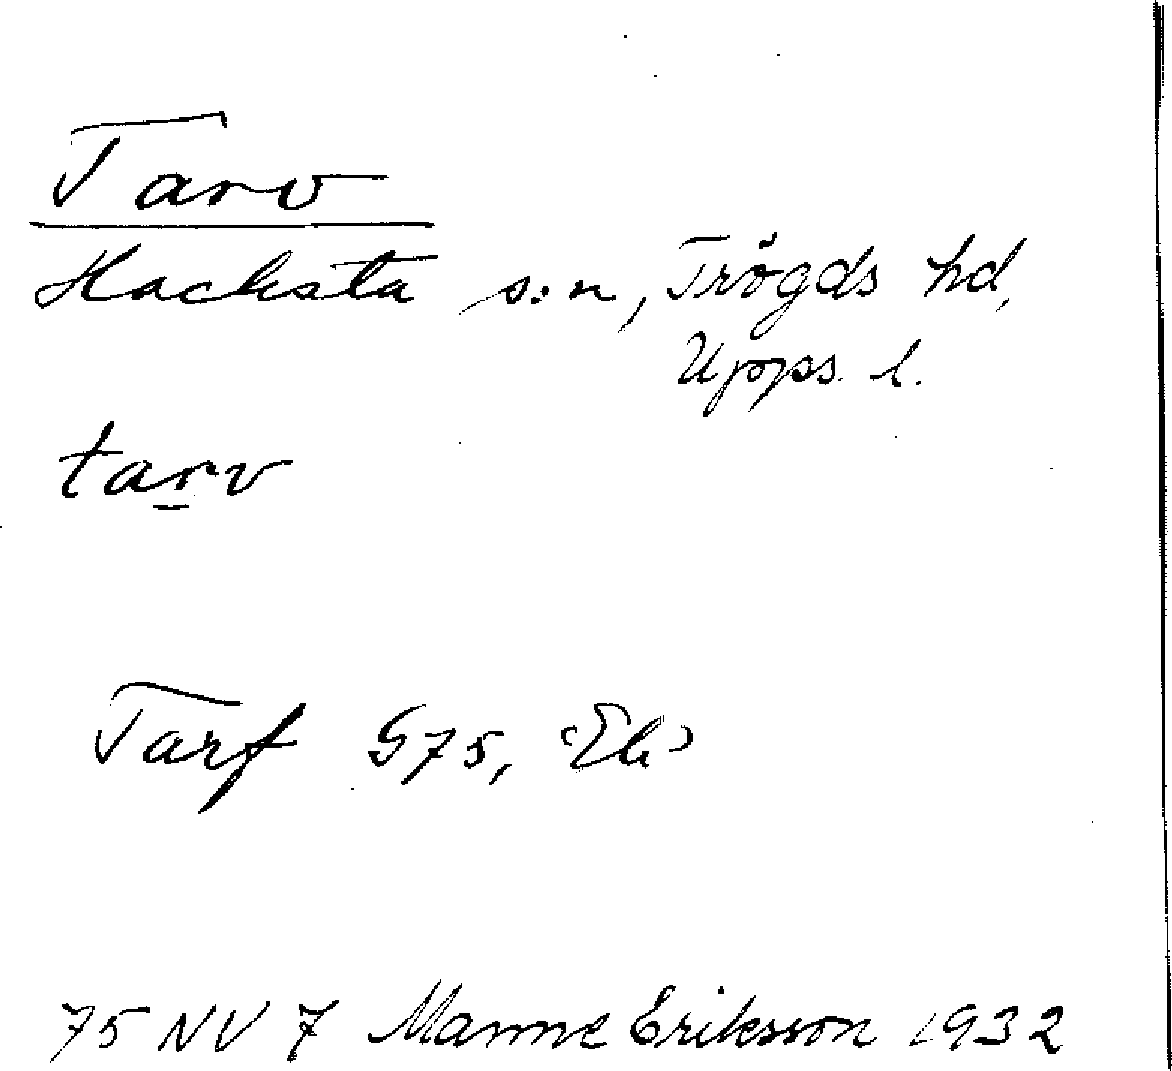 Tarv
Hacksta s:n, Trögds hd,
Upps. l.
tarv
Tarf G75,
75 NV 7 Manne Eriksson 1932